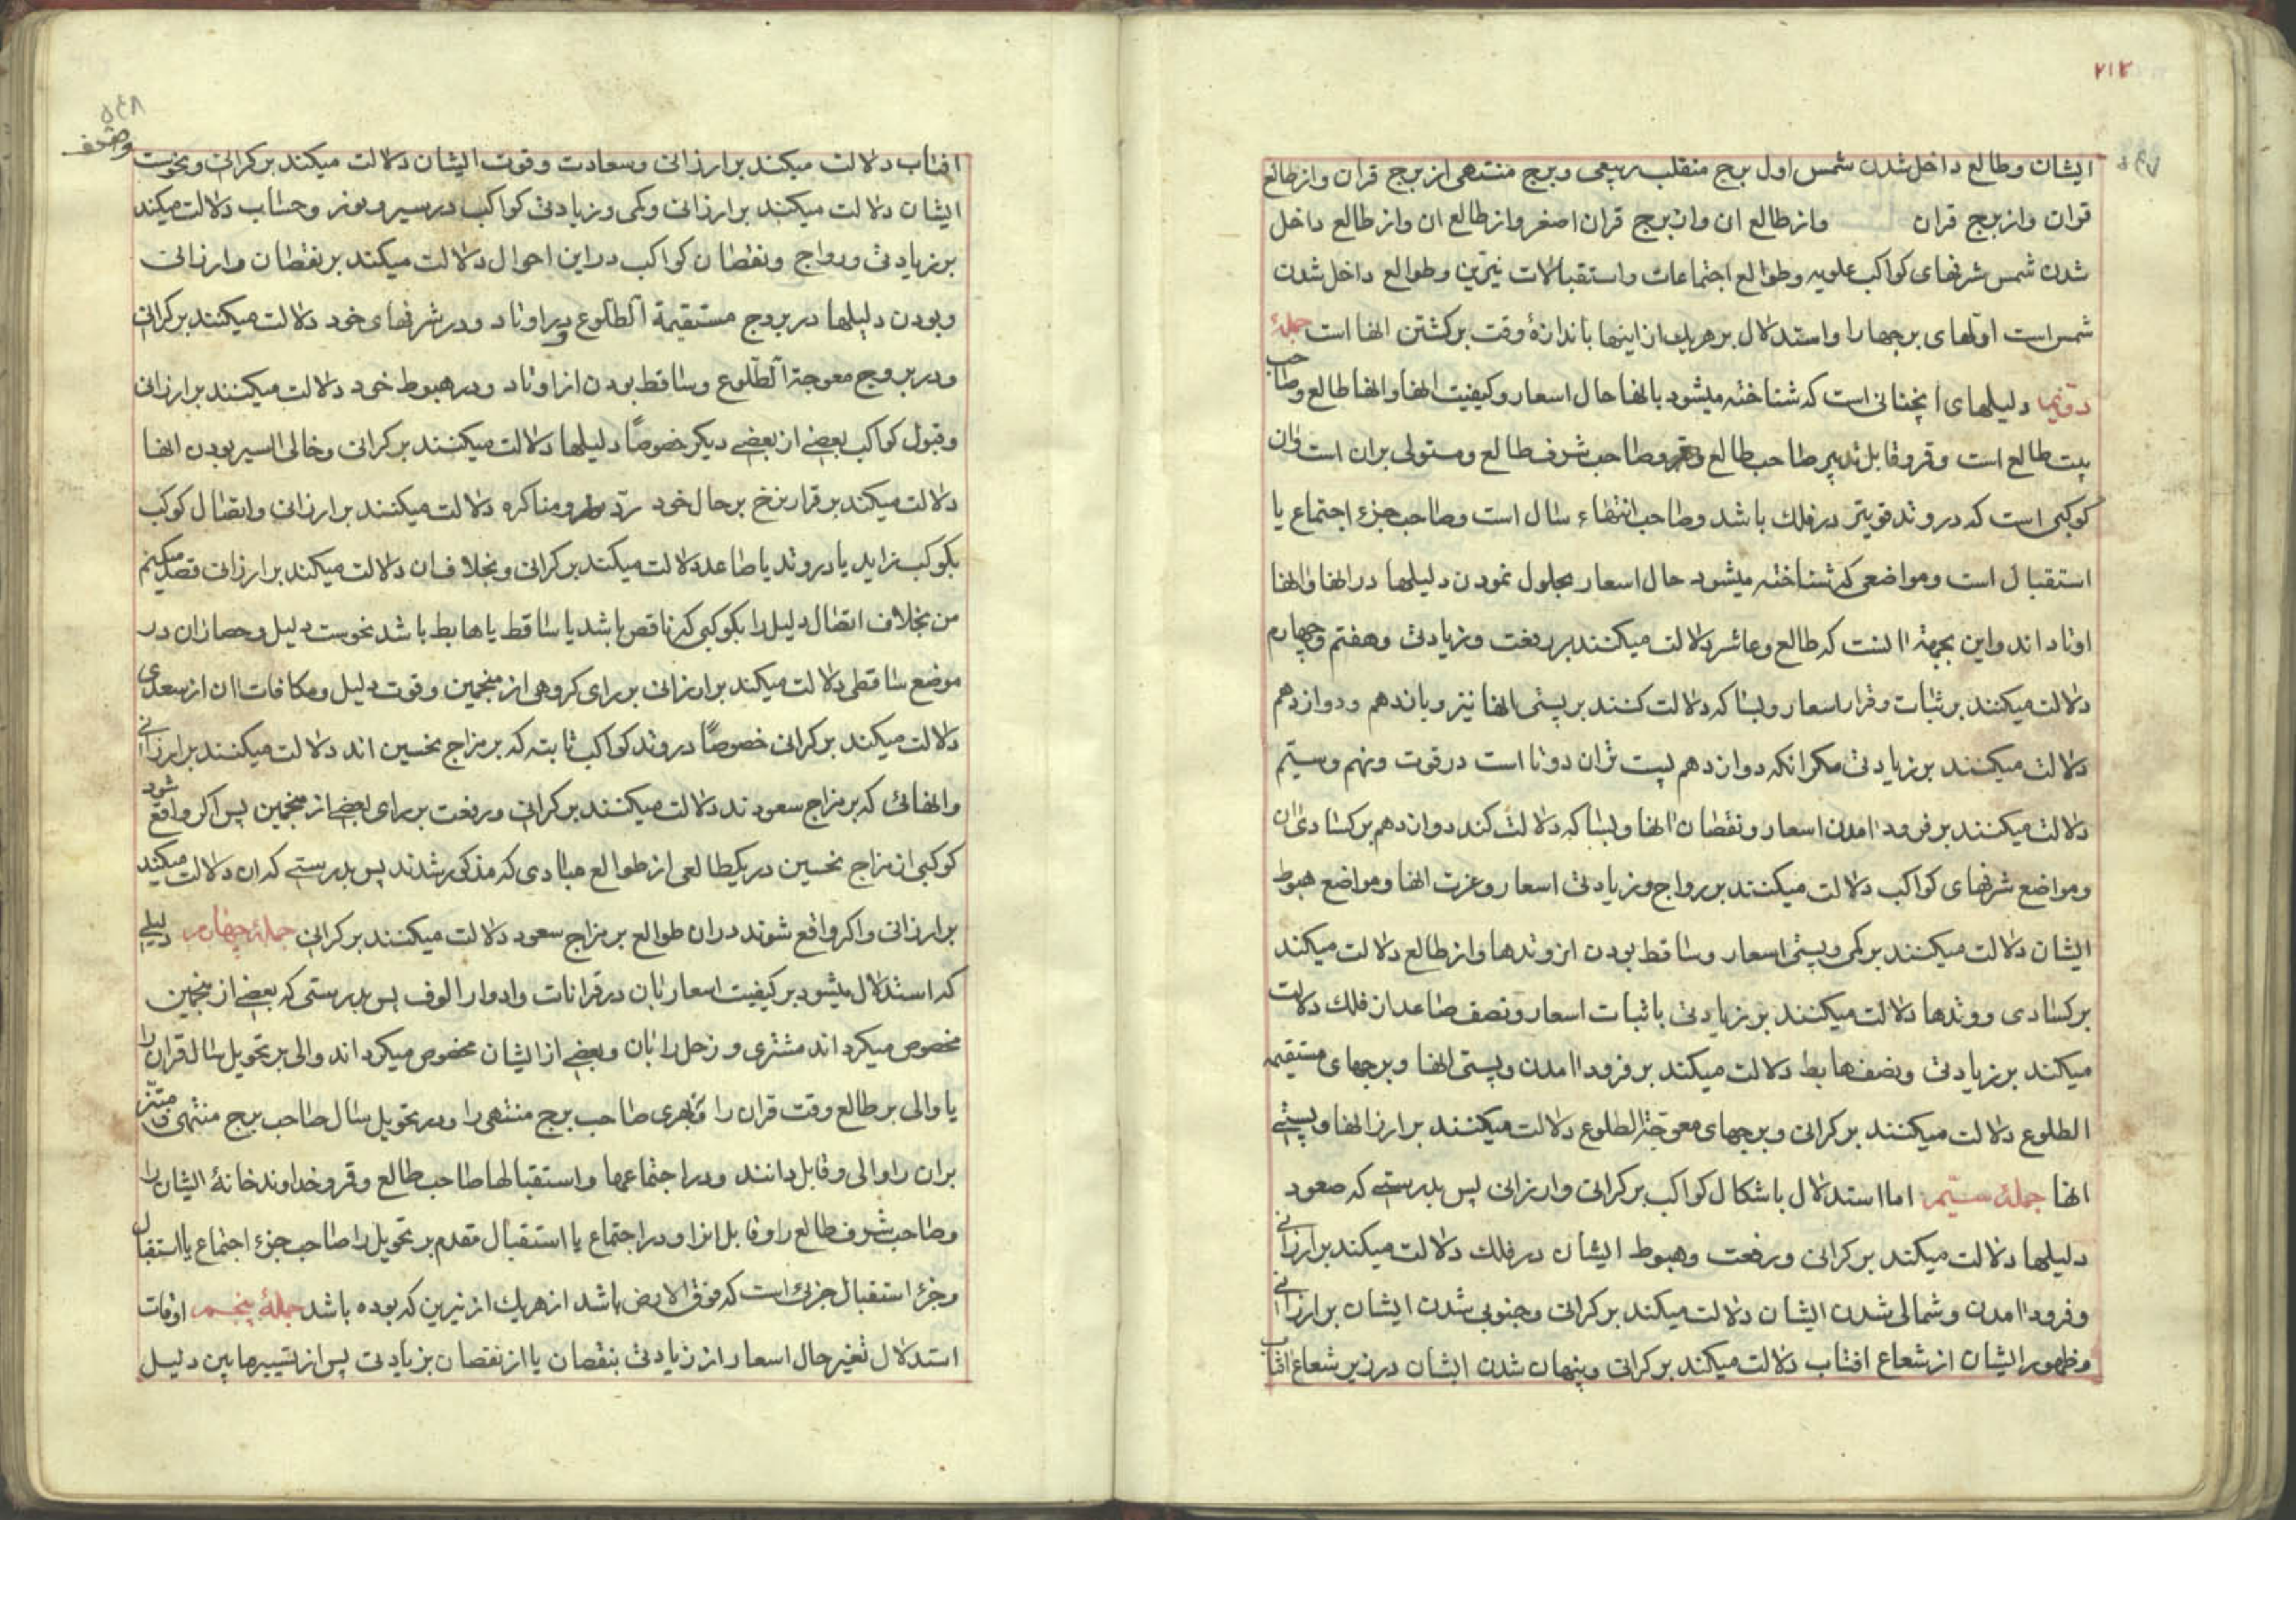 ۲۱۲
ایشان وطالع داخل شدن شمس اول برج منقلب ربیعی وبرج منتهی از برج قران واز طالع
قران واز برج قران واز طالع ان واز برج قران اصغر واز طالع ان واز طالع داخل
شدن شمس شرفهای کواکب علویه وطوالع اجتماعات واستقبالات نیّرین وطوالع داخل شدن
شمس است اولهای برجها را واستدلال بر هریك از اینها باندازهٔ وقت برکشتن انها است جملهٔ
دویم دلیلهای انچنانی است که شناخته میشود بانها حال اسعار وکیفیت انها وانها طالع وصاحب
بیت طالع است وقمر وقابل تدبیر صاحب طالع وقمر وصاحب شرف طالع ومستولی بران است وان
کوکبی است که در وتد قویتر در فلك باشد وصاحب انتهاء سال است وصاحب جزء اجتماع یا
استقبال است ومواضعی که شناخته میشود حال اسعار بحلول نمودن دلیلها در انها وانها
اوتاد اند واین بجهة انست که طالع وعاشر دلالت میکنند بر رفعت وزیادتی وهفتم وچهارم
دلالت میکنند بر ثبات وقرار اسعار وبسا که دلالت کنند بر پستی انها نیز ویازدهم ودوازدهم
دلالت میکنند بر زیادتی مکر انکه دوازدهم پست تر ان دوتا است در قوت ونهم وسیّم
دلالت میکنند بر فرود امدن اسعار ونقصان انها وبسا که دلالت کند دوازدهم بر کسادی ان
ومواضع شرفهای کواکب دلالت میکنند بر رواج وزیادتی اسعار وعزت انها ومواضع هبوط
ایشان دلالت میکنند بر کمی وپستی اسعار وساقط بودن از وتدها واز طالع دلالت میکند
بر کسادی ووتدها دلالت میکنند بر زیادتی باثبات اسعار ونصف صاعد از فلك دلالت
میکند بر زیادتی ونصف هابط دلالت میکند بر فرود امدن وپستی انها وبرجهای مستقیمة
الطلوع دلالت میکنند بر کرانی وبرجهای معوجة الطلوع دلالت میکنند بر ارز انها وپستی
انها جملهٔ سیّم اما استدلال باشکال کواکب بر کرانی وارزانی پس بدرستی که صعود
دلیلها دلالت میکند بر کرانی ورفعت وهبوط ایشان در فلك دلالت میکند بر ارزانی
وفرود امدن وشمالی شدن ایشان دلالت میکند بر کرانی وجنوبی شدن ایشان بر ارزانی
وظهور ایشان از شعاع افتاب دلالت میکند بر کرانی وپنهان شدن ایشان در زیر شعاع افتاب
افتاب دلالت میکند بر ارزانی وسعادت وقوت ایشان دلالت میکند بر کرانی ونحوست
ایشان دلالت میکند بر ارزانی وکمی وزیادتی کواکب در سیر ونور وحساب دلالت میکند
بر زیادتی ورواج ونقصان کواکب در این احوال دلالت میکند بر نقصان وارزانی
وبودن دلیلها در بروج مستقیمة الطلوع ودر اوتاد ودر شرفهای خود دلالت میکنند بر کرانی
ودر بروج معوجة الطلوع وساقط بودن از اوتاد ودر هبوط خود دلالت میکنند بر ارزانی
وقبول کواکب بعضی از بعضی دیکر خصوصاً دلیلها دلالت میکنند بر کرانی وخالی السیر بودن انها
دلالت میکند بر قرار نرخ بر حال خود ردّ ومناکره دلالت میکنند بر ارزانی واتصال کوکب
بکوکب زاید یا در وتد یا صاعد دلالت میکند بر کرانی وبخلاف ان دلالت میکند بر ارزانی قصد میکنم
من بخلاف اتصال دلیل را بکوکبی که ناقص باشد یا ساقط یا هابط باشد نحوست دلیل وحصار ان در
موضع ساقطی دلالت میکند بر ارزانی بر رای کروهی از منجمین وقوت دلیل ومکافات ان از سعدی
دلالت میکند بر کرانی خصوصاً در وتد کواکب ثابته که بر مزاج نحسین اند دلالت میکنند بر ارزانی
وانهائی که بر مزاج سعودند دلالت میکنند بر کرانی ورفعت بر رای بعضی از منجمین پس اکر واقع شود
کوکبی از مزاج نحسین در یکطالعی از طوالع مبادی که مذکور شدند پس بدرستی که ان دلالت میکند
بر ارزانی واکر واقع شوند در ان طوالع بر مزاج سعود دلالت میکنند بر کرانی جملهٔ چهارم دلیلی
که استدلال میشود بر کیفیت اسعار بان در قرانات وادوار الوف پس بدرستی که بعضی از منجمین
مخصوص میکرداند مشتری وزحل را بان وبعضی از ایشان مخصوص میکرداند والی بر تحویل سال قران را
یا والی بر طالع وقت قران را وبهری صاحب برج منتهی را ودر تحویل سال صاحب برج منتهی
بران را والی وقابل دانند ودر اجتماعها واستقبالها صاحب طالع وقمر وخداوند خانهٔ ایشان را
وصاحب شرف طالع را وقابل انرا ودر اجتماع یا استقبال مقدم بر تحویل را صاحب جزء اجتماع یا استقبال
وجزء استقبال جزئی است که فوق الارض باشد از هریك از نیرین که بوده باشد جملهٔ پنجم اوقات
استدلال تغیر حال اسعار از زیادتی بنقصان یا از نقصان بزیادتی پس از تسییرها بین دلیل